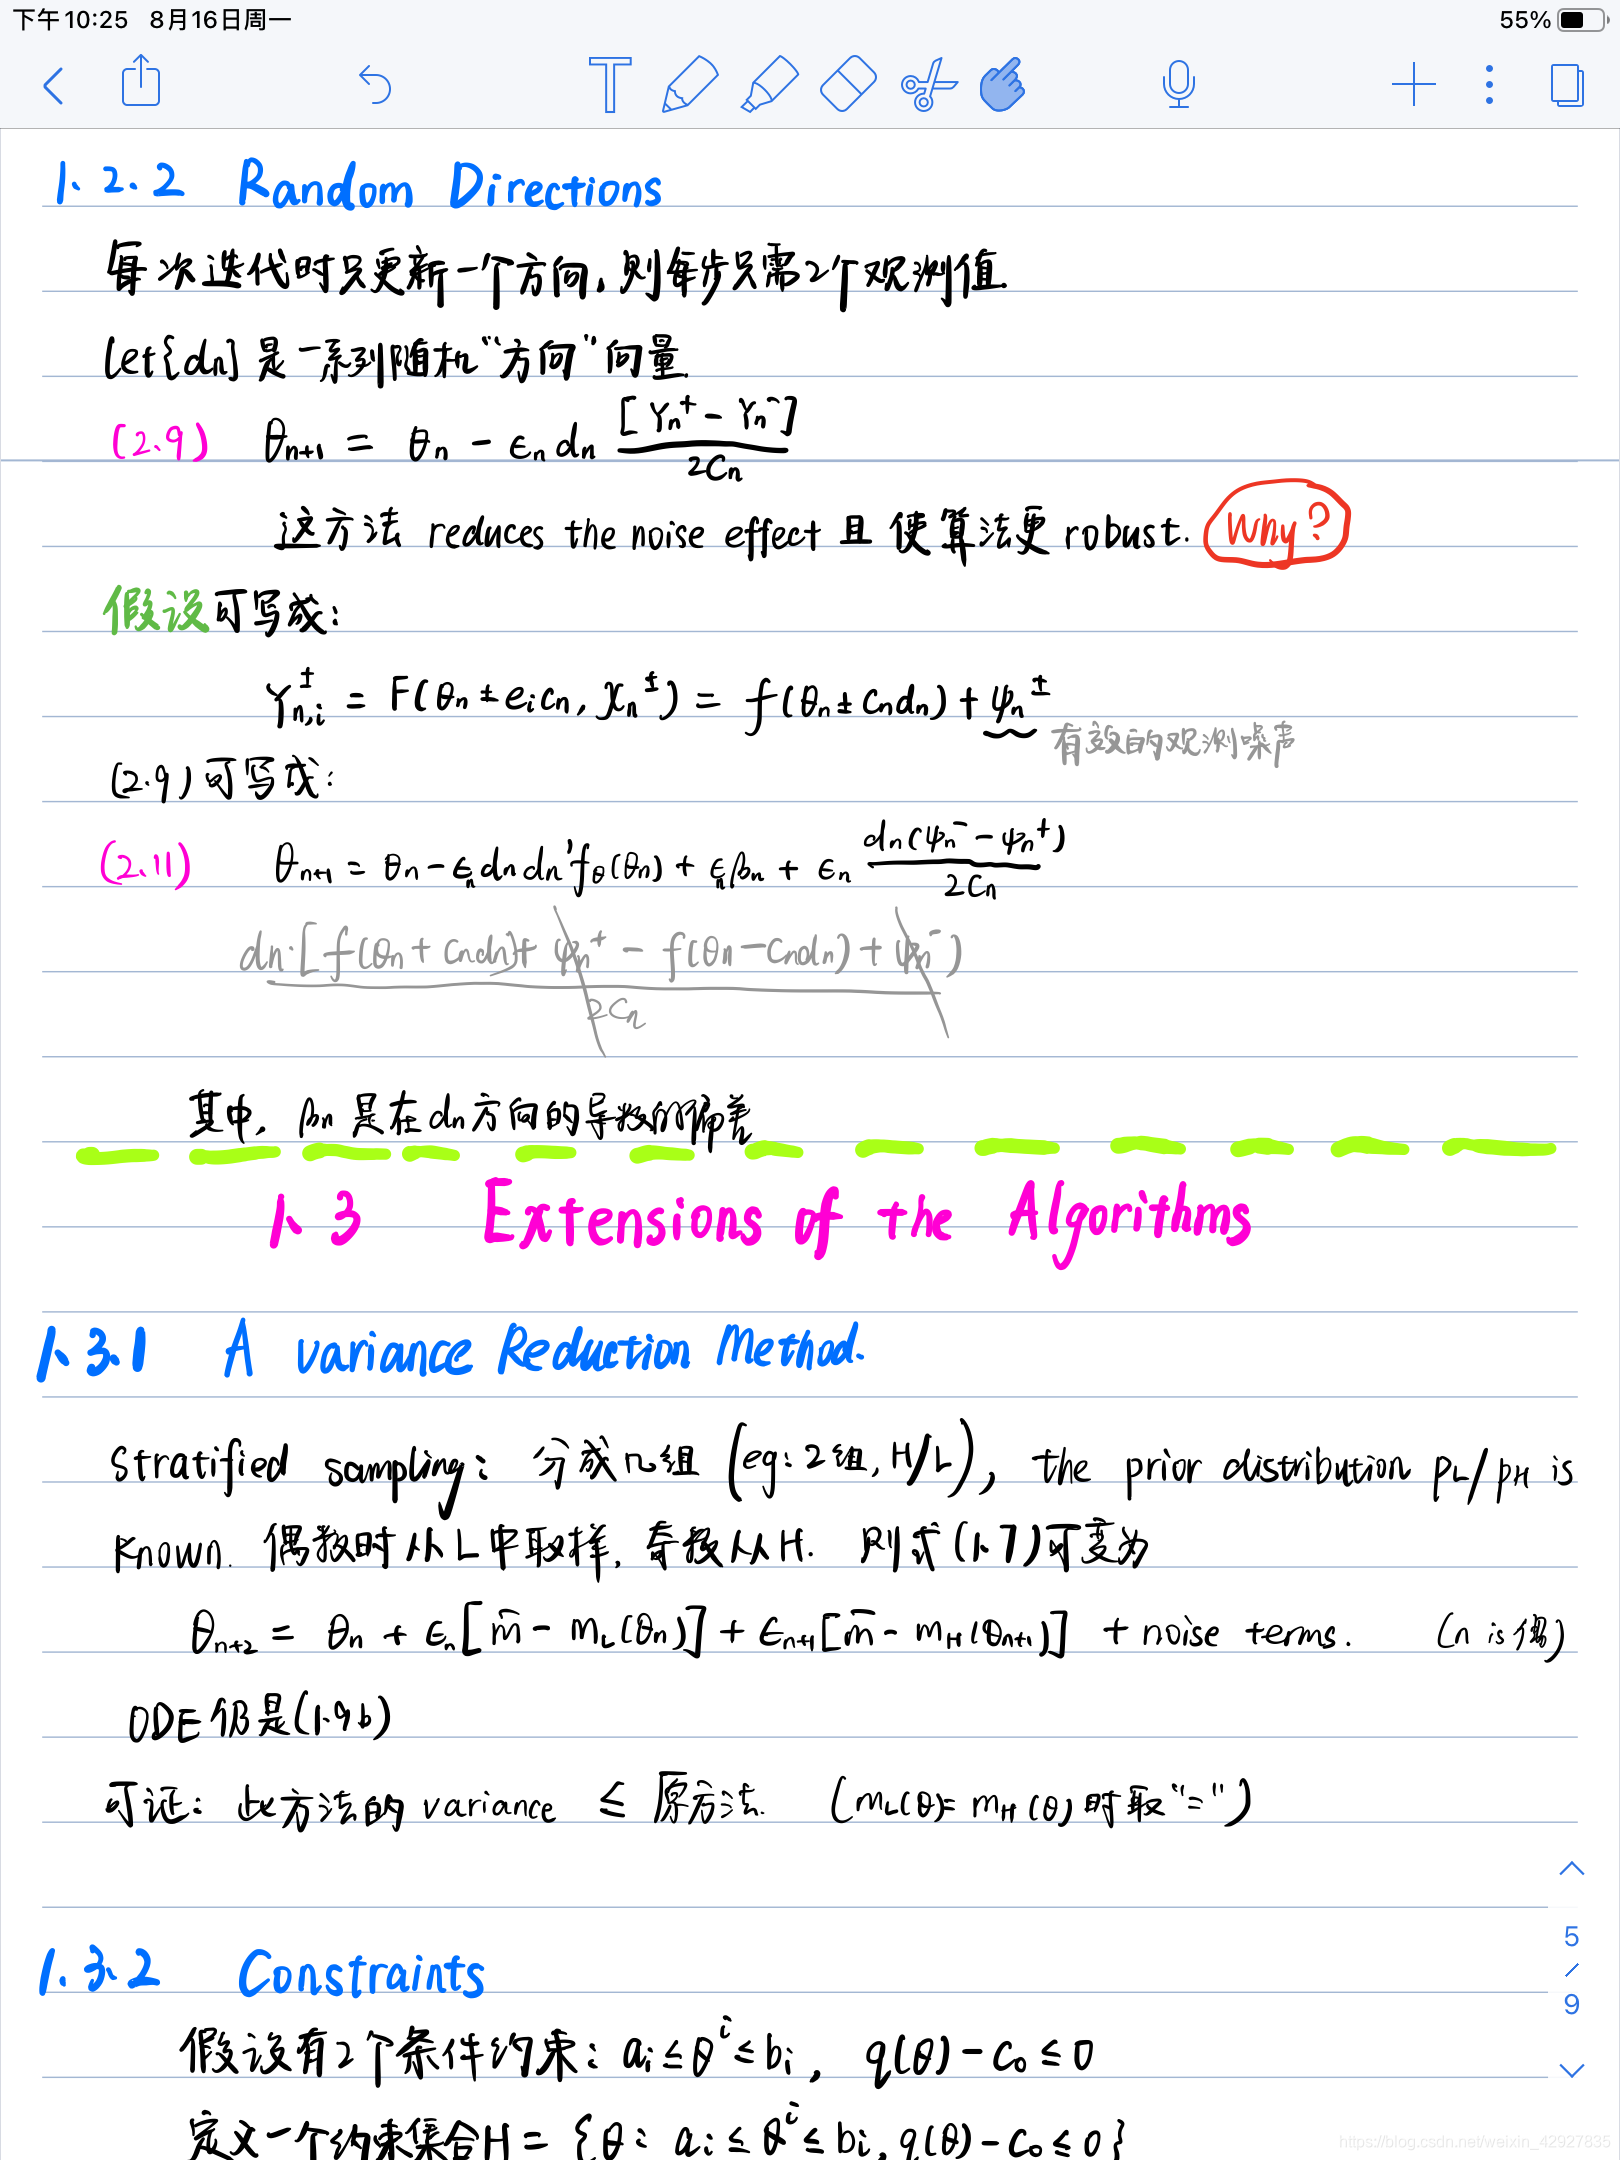 下午10:25 8月16日周一 55%
1.2.2 Random Directions
每次迭代时只更新一个方向,则每步只需2个观测值.
let{dn}是一系列随机“方向”向量.
(2.9) θn+1 = θn - εn dn [Yn⁺ - Yn⁻] / 2Cn
这方法 reduces the noise effect 且 使算法更 robust. Why?
假设可写成:
Y±n,i = F(θn ± ei cn, χn±) = f(θn ± cn dn) + ψn±
有效的观测噪声
(2.9)可写成:
(2.11) θn+1 = θn - εn dn dn' fθ(θn) + εn βn + εn dn(ψn⁻ - ψn⁺) / 2Cn
dn·[f(θn + cndn) + ψn⁺ - f(θn - cndn) + ψn⁻) / 2Cn
其中, βn 是在dn方向的导数的偏差
1.3 Extensions of the Algorithms
1.3.1 A variance Reduction Method.
Stratified sampling: 分成几组 (eg: 2组, H/L), the prior distribution PL/PH is
known. 偶数时从L中取样, 奇数从H. 则式(1.7)可变为
θn+2 = θn + εn[m̄ - mL(θn)] + εn+1[m̄ - mH(θn+1)] + noise terms. (n is 偶)
ODE仍是(1.9b)
可证: 此方法的 variance ≤ 原方法. (mL(θ)= mH(θ) 时取“=”)
1.3.2 Constraints
假设有2个条件约束: ai ≤ θⁱ ≤ bi, q(θ) - c₀ ≤ 0
定义一个约束集合H = {θ: ai ≤ θⁱ ≤ bi, q(θ) - c₀ ≤ 0}
5
/
9
https://blog.csdn.net/weixin_42927835